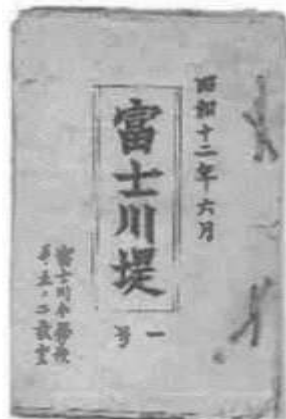 昭和十二年六月
富士川堤
一号
富士川小学校
五ノ二教室